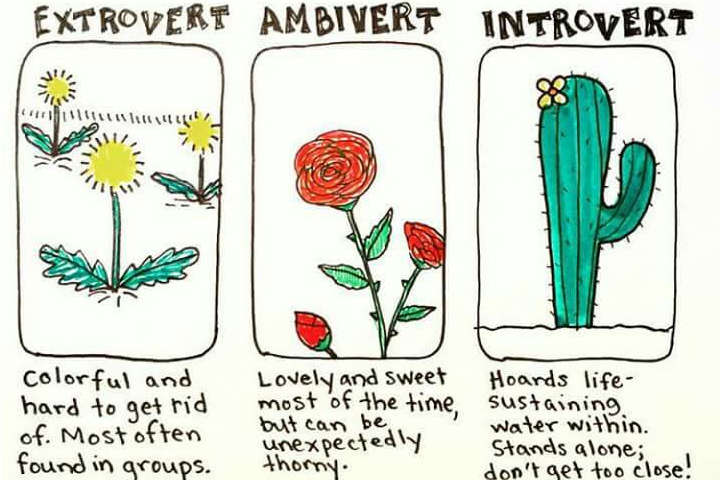 EXTROVERT
Colorful and
hard to get rid
of. Most often
found in groups.
AMBIVERT
Lovely and sweet
most of the time,
but can be
unexpectedly
thorny.
INTROVERT
Hoards life-
sustaining
water within.
Stands alone;
don't get too close!